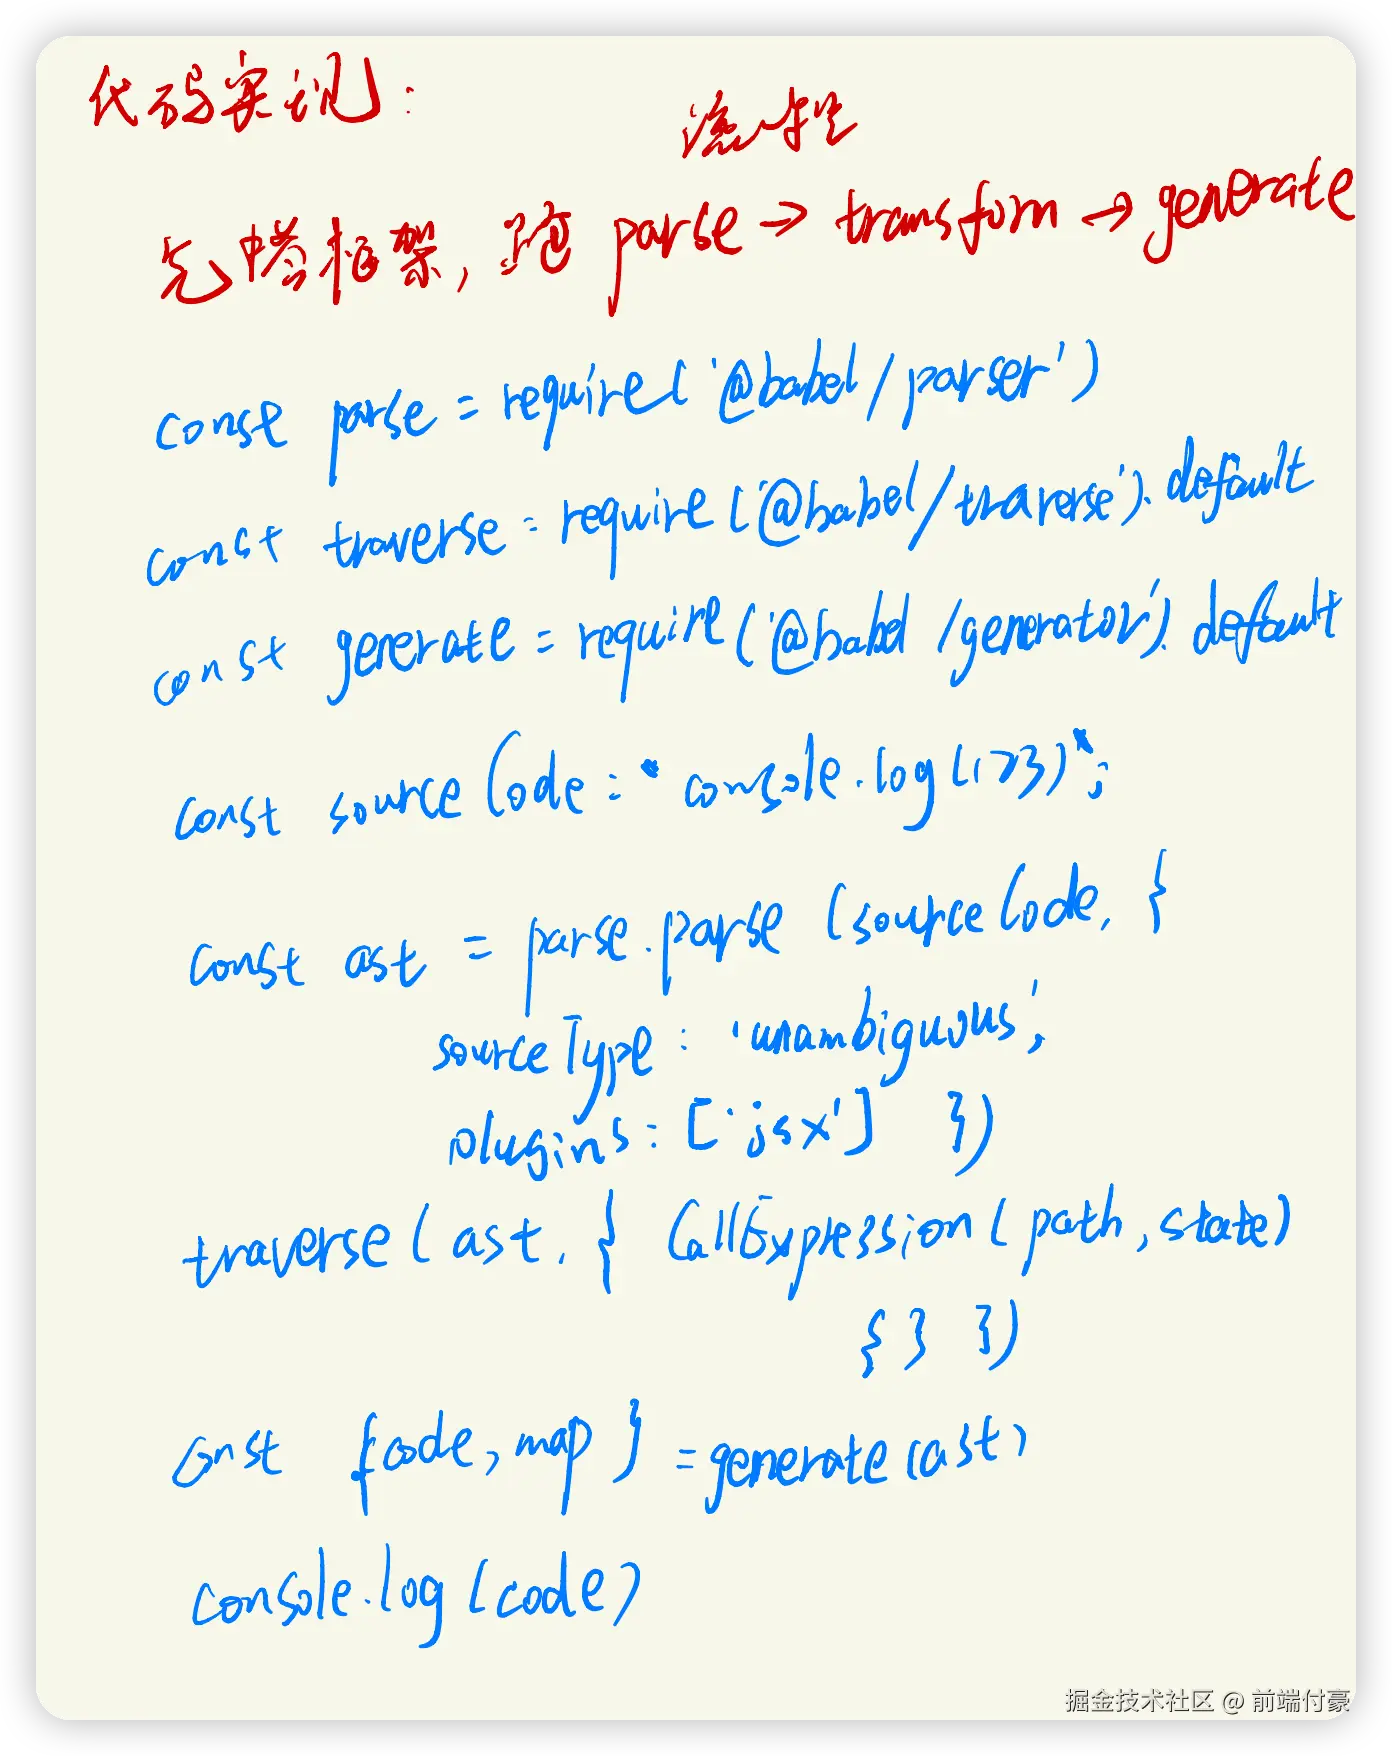 代码实现：
流程
先搭框架，跑 parse → transform → generate
const parse = require('@babel/parser')
const traverse = require('@babel/traverse').default
const generate = require('@babel/generator').default
const sourceCode = `console.log(123)`;
const ast = parse.parse(sourceCode, {
sourceType: 'unambiguous',
plugins: ['jsx'] })
traverse(ast, { CallExpression(path, state)
{ } })
const {code, map} = generate(ast)
console.log(code)
掘金技术社区 @ 前端付豪